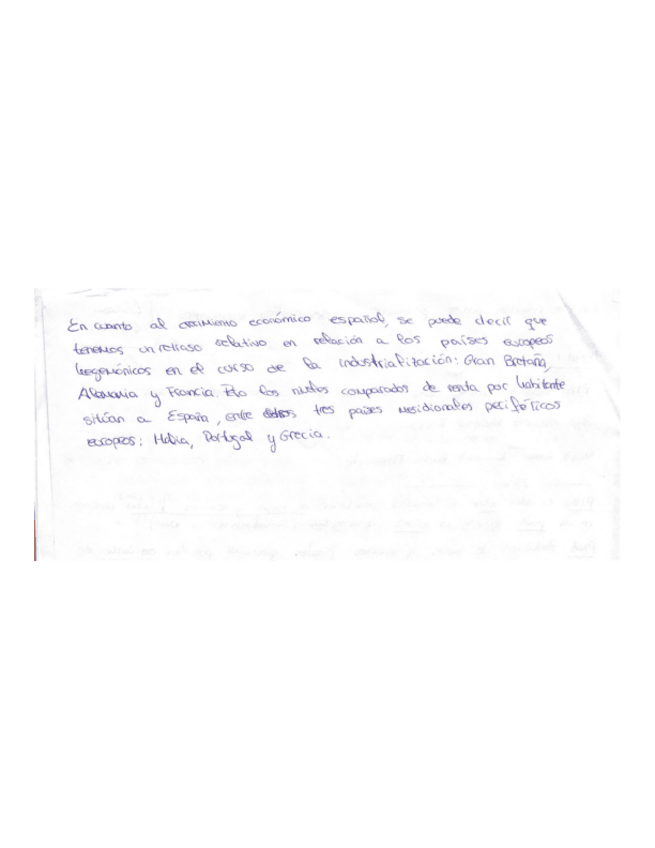 En cuanto al crecimiento económico español, se puede decir que
tenemos un retraso relativo en relación a los países europeos
hegemónicos en el curso de la industrialización: Gran Bretaña,
Alemania y Francia. Pero los niveles comparados de renta por habitante
sitúan a España, entre tres países meridionales periféricos
europeos: Italia, Portugal y Grecia.